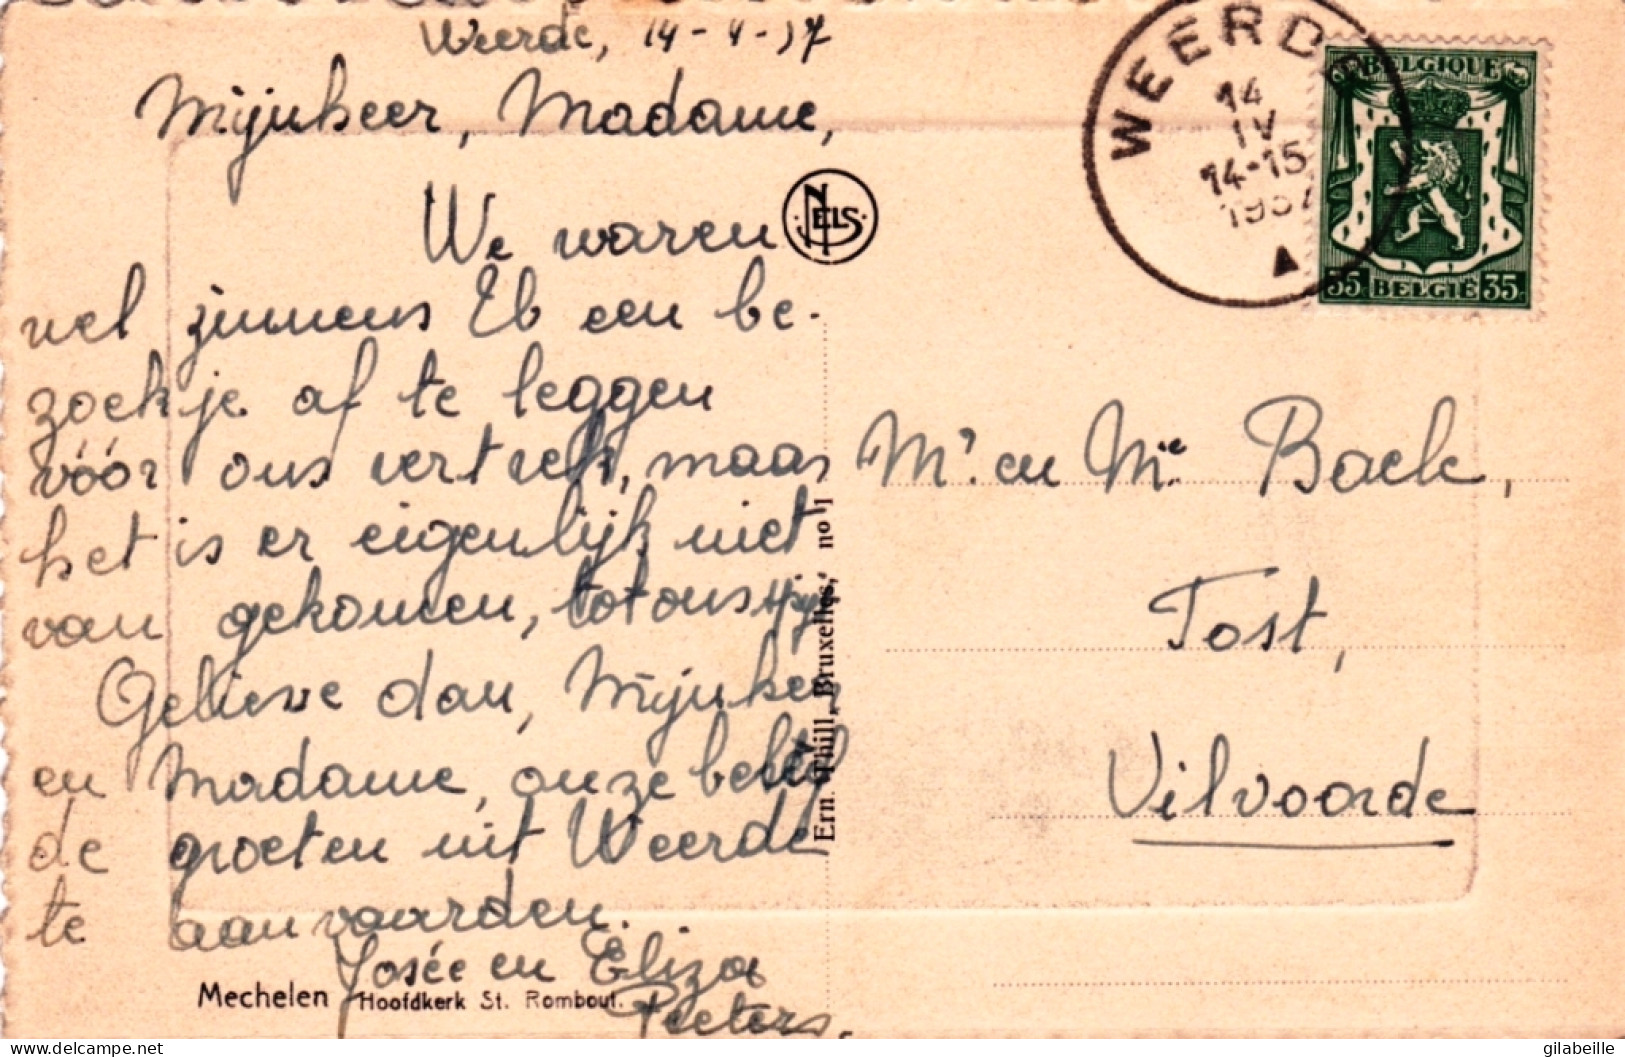 Weerde, 14-4-37
Mijnheer, Madame,
We waren
wel zinnens U een be-
zoekje af te leggen
vóór ons vertrek, maar
het is er eigenlijk niet
van gekomen, tot ons spijt.
Gelieve dan, Mijnheer
en Madame, onze beleef
de groeten uit Weerde
te aanvaarden.
Josée en Eliza
Peeters.
NELS
Ern. Thill, Bruxelles, no 1
Mechelen Hoofdkerk St. Rombout.
WEERDE
14
IV
14-15
1937
BELGIQUE
35 BELGIË 35
Mr. en Me. Baek,
Tost,
Vilvoorde
delcampe.net
gilabeille